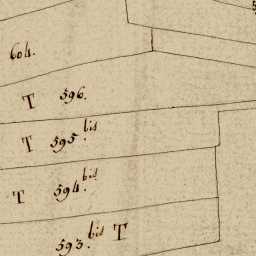 604.
T 596.
T 595.bis
T 594.bis
593.bis T